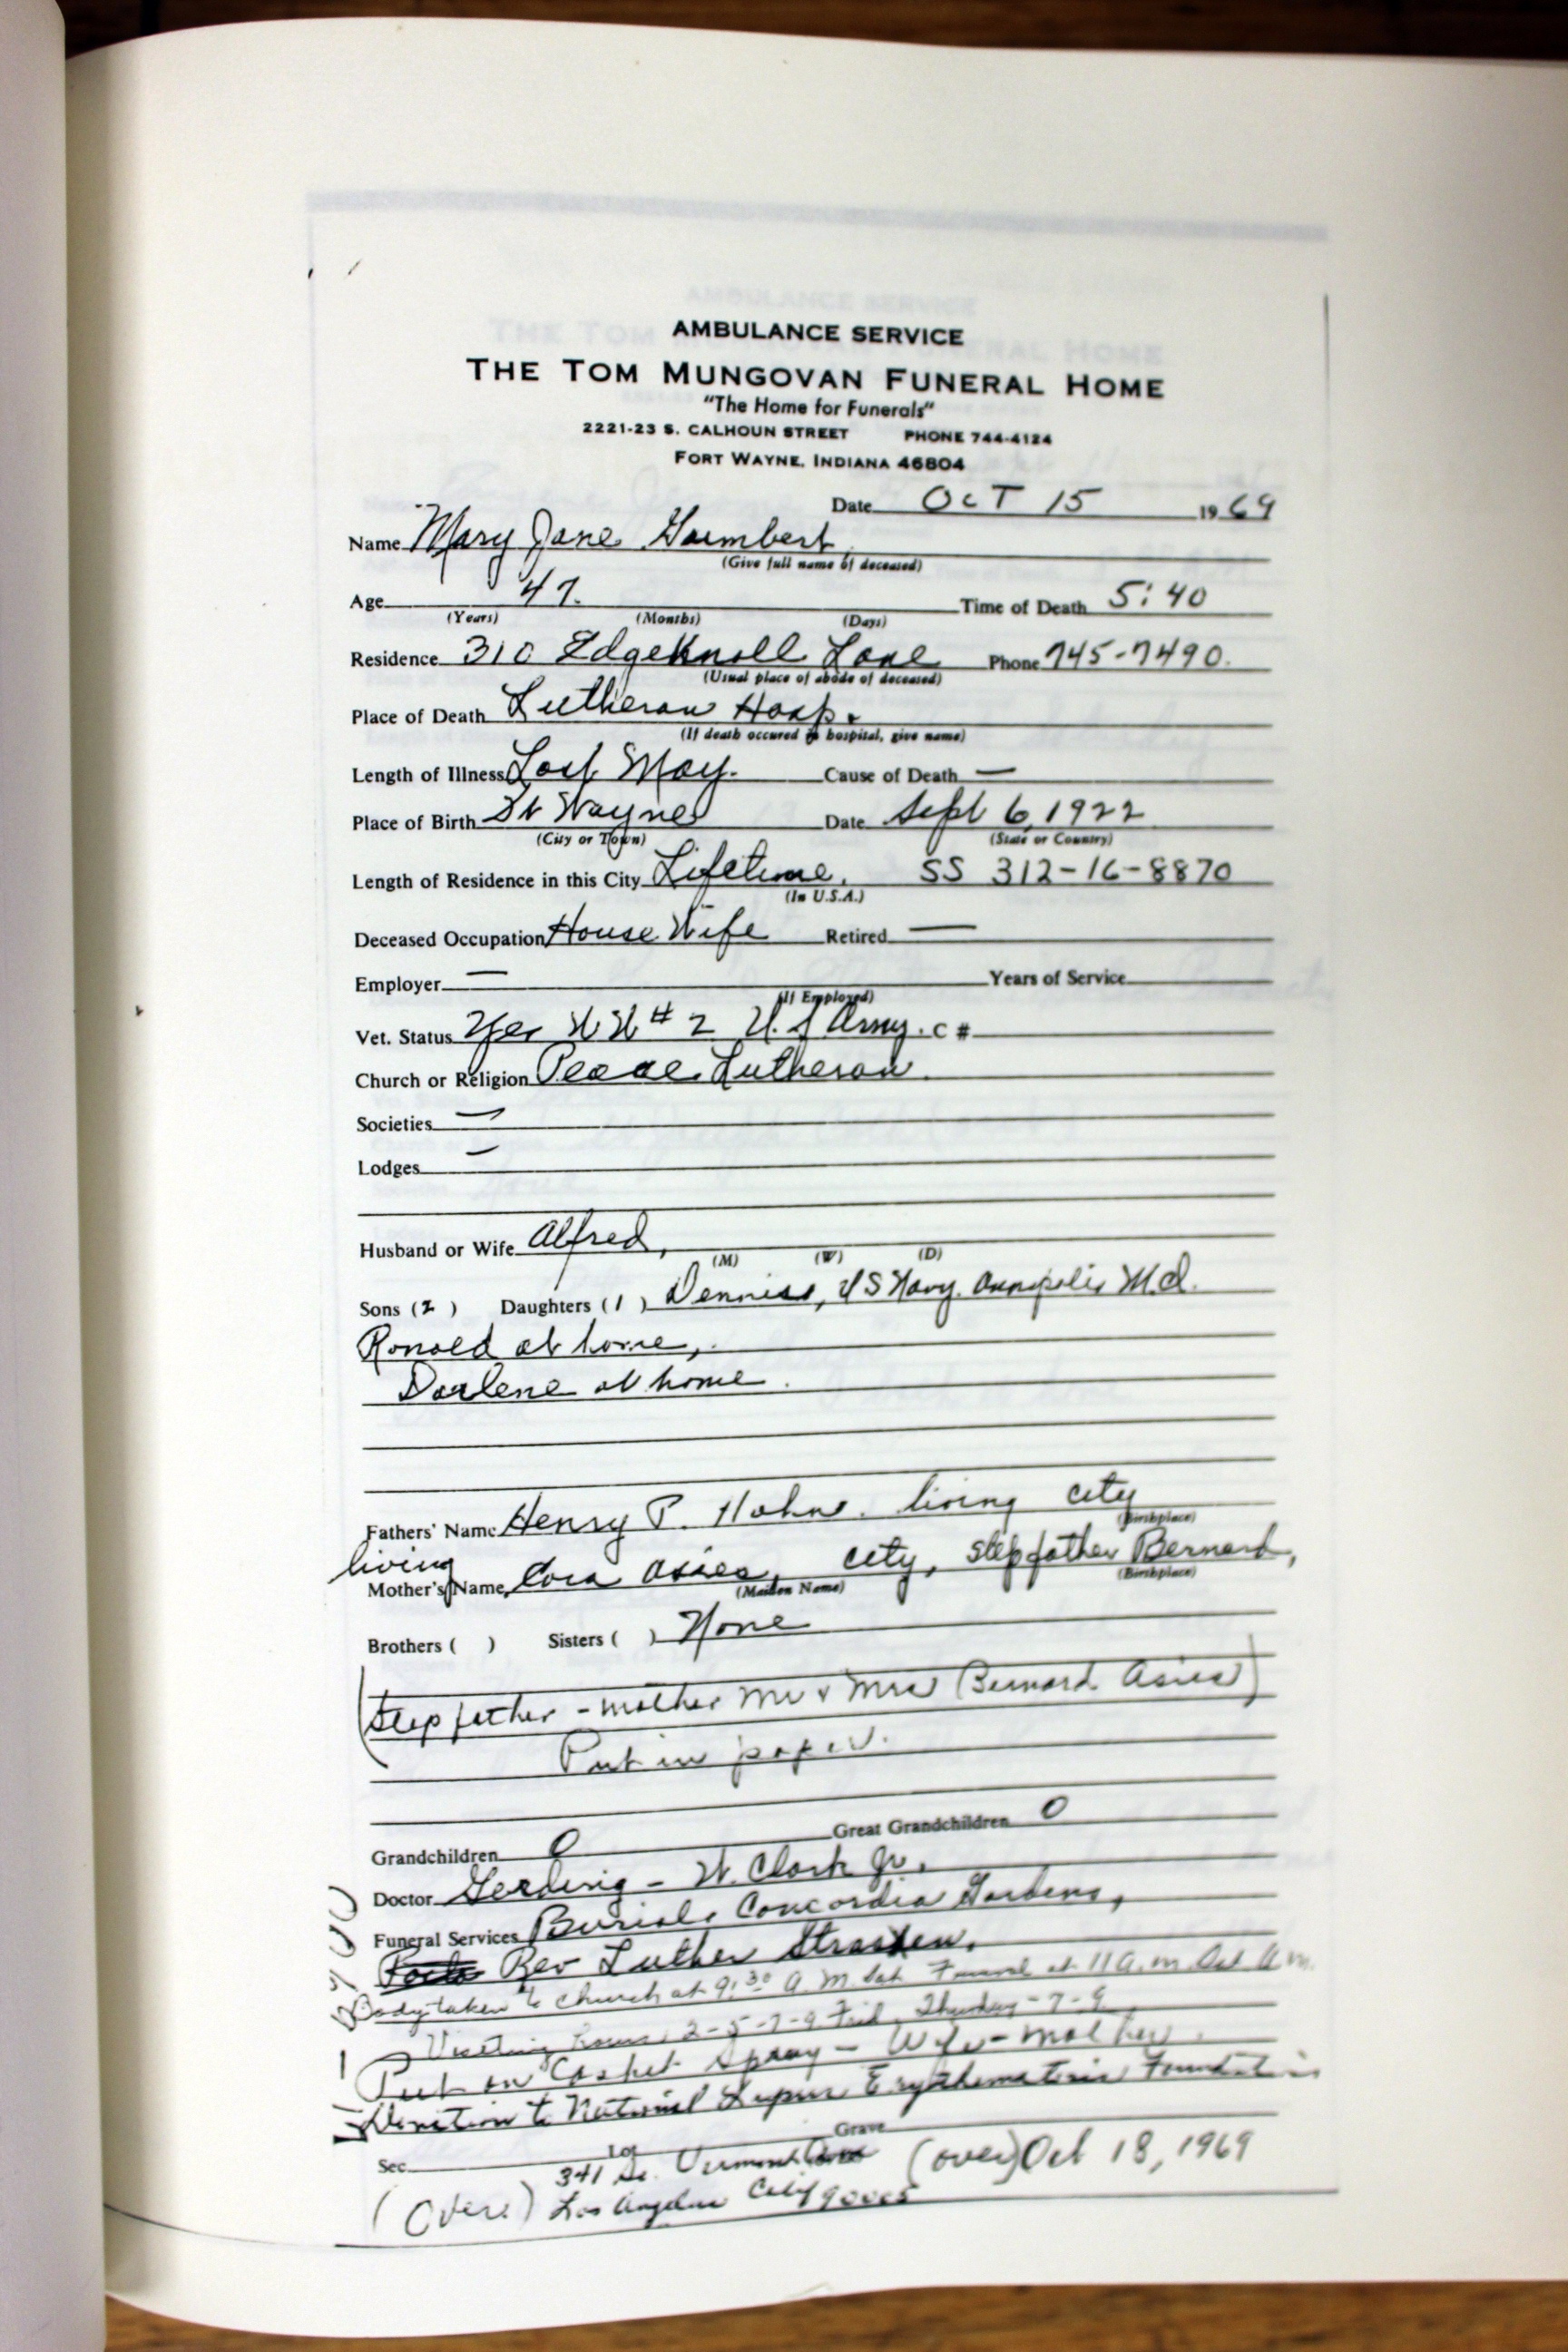 AMBULANCE SERVICE
THE TOM MUNGOVAN FUNERAL HOME
"The Home for Funerals"
2221-23 S. CALHOUN STREET PHONE 744-4124
FORT WAYNE, INDIANA 46804
Date OCT 15 1969
Name Mary Jane
(Give full name of deceased)
Age 47. Time of Death 5:40
(Years) (Months) (Days)
Residence 310 Edgeknoll Lane Phone 745-7490.
(Usual place of abode of deceased)
Place of Death Lutheran Hosp.
(If death occured in hospital, give name)
Length of Illness Last May. Cause of Death —
Place of Birth Ft Wayne Date Sept 6, 1922
(City or Town) (State or Country)
Length of Residence in this City Lifetime. SS 312-16-8870
(In U.S.A.)
Deceased Occupation House Wife Retired —
Employer — Years of Service
(If Employed)
Vet. Status Yes W W # 2 U.S Army. C #
Church or Religion Peace Lutheran.
Societies —
Lodges —
Husband or Wife Alfred,
(M) (W) (D)
Sons (2) Daughters (1) Dennis, US Navy. Annapolis Md.
Ronald at home,
Darlene at home.
Fathers' Name Henry P. Hahn. living city
(Birthplace)
living
Mother's Name, Cora city, stepfather Bernard,
(Maiden Name) (Birthplace)
Brothers ( ) Sisters ( ) None
(Step father - mother Mr & Mrs Bernard)
Put in paper.
Grandchildren 0 Great Grandchildren 0
Doctor Gerding - W. Clark Jr.
Funeral Services Burial, Concordia Gardens,
Rev Luther Strasen.
Body taken to church at 9:30 A.M Sat Funeral at 11 a.m. Sat
Visiting hours 2-5-7-9 Fri, Thursday-7-9
Put on Casket Spray - Wife - Mother.
Donation to National Lupus Erythematosis Foundation
Sec. Lot Grave
341 So. Vermont (over) Oct 18, 1969
(Over.) Los Angeles Calif 90005